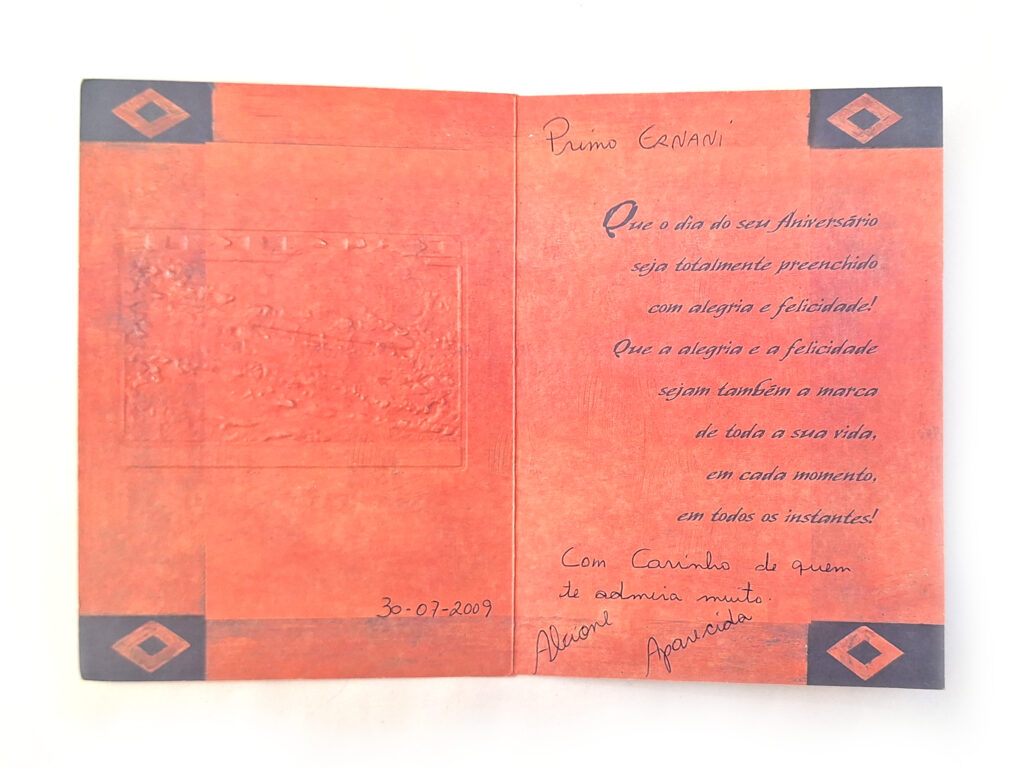 30-07-2009
Primo ERNANI
Que o dia do seu Aniversário
seja totalmente preenchido
com alegria e felicidade!
Que a alegria e a felicidade
sejam também a marca
de toda a sua vida,
em cada momento,
em todos os instantes!
Com Carinho de quem
te admira muito.
Alcione Aparecida